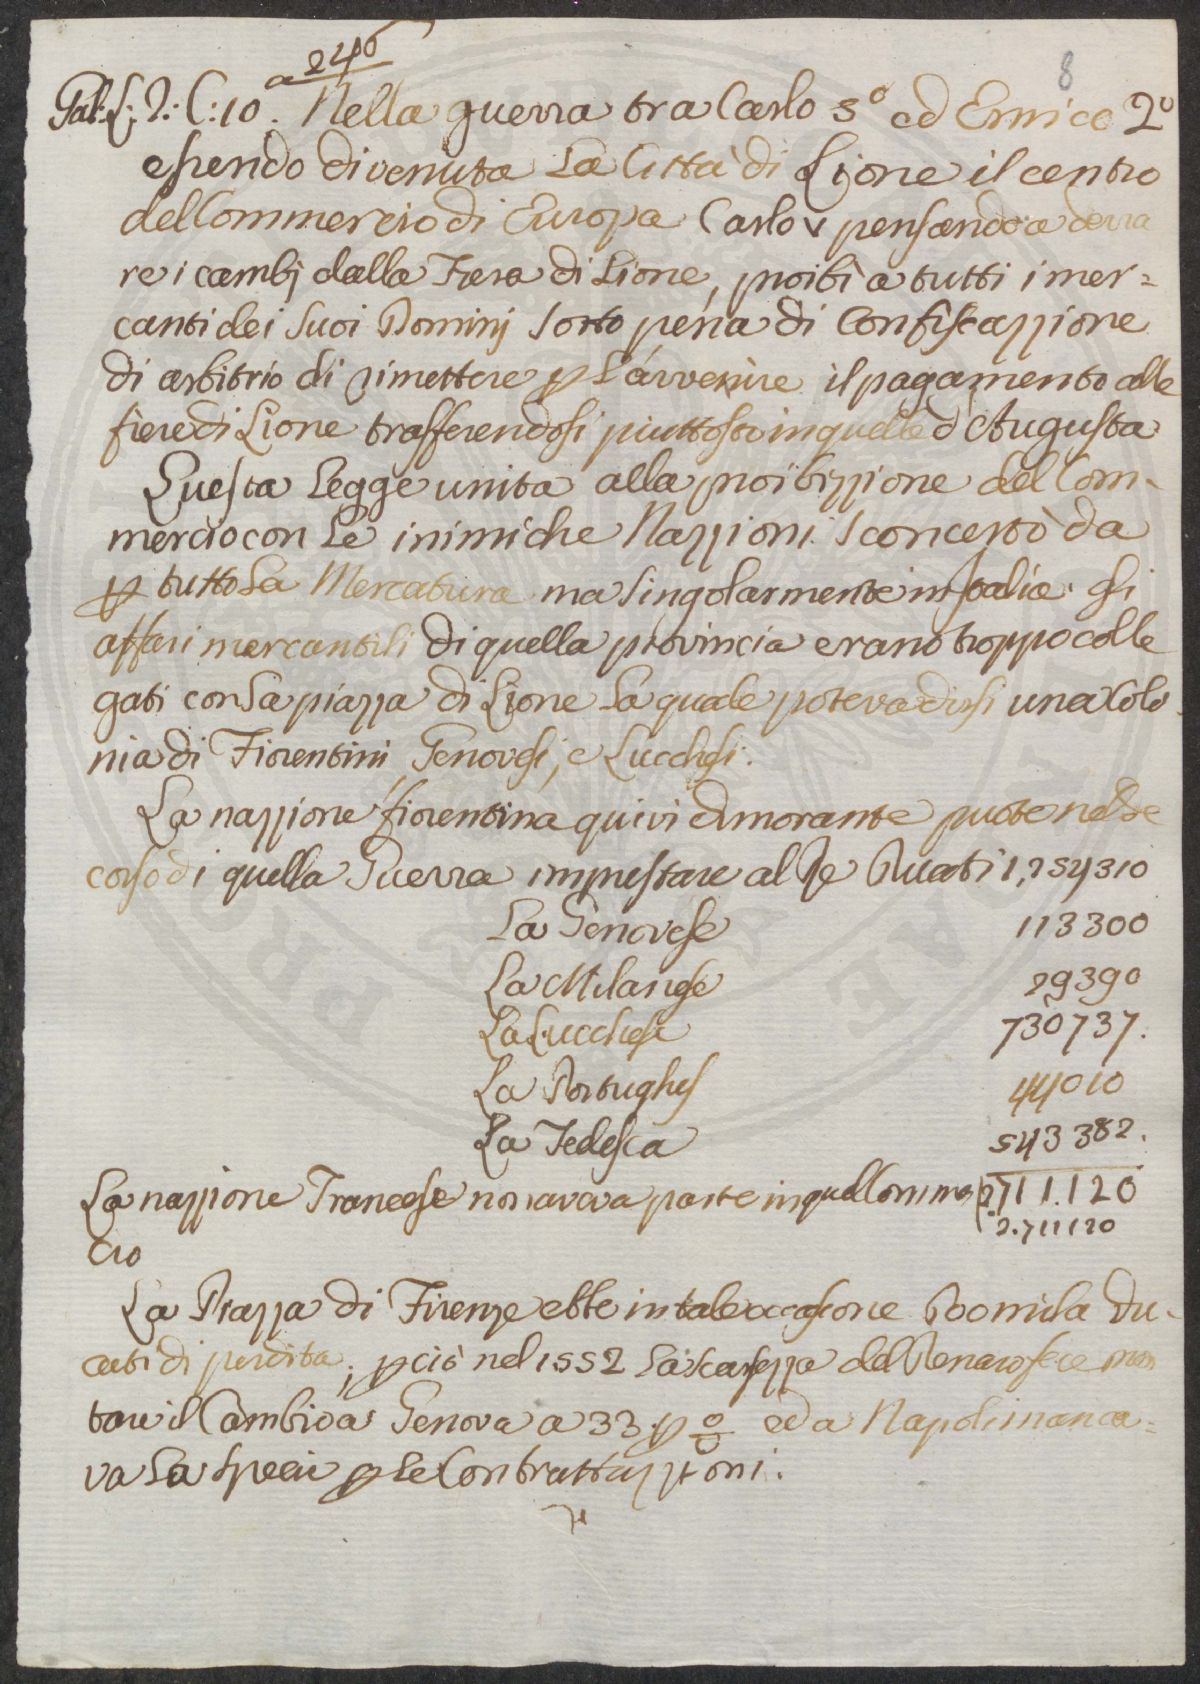 a 246
8
Gal: L: 2: C: 10. Nella guerra tra Carlo 5º ed Enrico 2º
essendo divenuta La Città di Lione il centro
del Commercio di Europa Carlo V pensando a devia
re i cambj dalla Fiera di Lione, proibì a tutti i mer=
canti dei suoi Dominj sotto pena di Confiscazzione
di arbitrio di rimettere p L'avvenire il pagamento alle
fiere di Lione trasferendosi piuttosto in quelle d'Augusta
Questa Legge unita alla proibizzione del Com-
mercio con Le inimiche Nazzioni sconcertò da
p tutto La Mercatura ma singolarmente in Italia. Gli
affari mercantili di quella provincia erano troppo colle
gati con La piazza di Lione La quale poteva dirsi una Colo
nia di Fiorentini, Genovesi, e Lucchesi.
La nazzione fiorentina quivi dimorante puote nel de
corso di quella Guerra imprestare al Re Ducati 1,254310
La Genovese 113300
La Milanese 29390
La Lucchese 730737.
La Portughes 44010
La Tedesca 543382.
La nazzione Francese non aveva parte in quel Comme 2711.120
cio 2.711120
La Piazza di Firenze ebbe in tale occasione 200 mila Du-
cati di perdita; p ciò nel 1552 La scarsezza del Denaro fece mon
tare il Cambio a Genova a 33 p % ed a Napoli manca=
va La specie p Le Contrattazzioni.